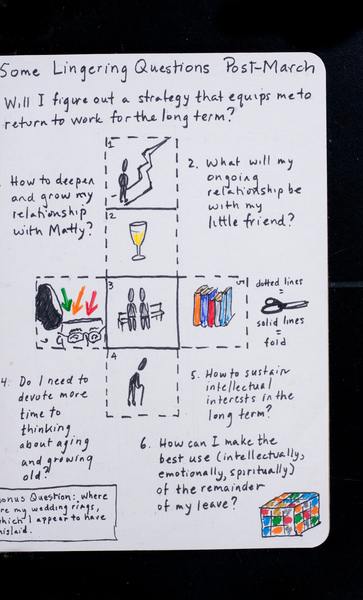 Some Lingering Questions Post-March
Will I figure out a strategy that equips me to
return to work for the long term?
How to deepen
and grow my
relationship
with Matty?
1
2
3
4
5
2. What will my
ongoing
relationship be
with my
little friend?
dotted lines
=
solid lines
=
fold
4. Do I need to
devote more
time to
thinking
about aging
and growing
old?
5. How to sustain
intellectual
interests in the
long term?
6. How can I make the
best use (intellectually,
emotionally, spiritually)
of the remainder
of my leave?
Bonus Question: where
are my wedding rings,
which I appear to have
mislaid.